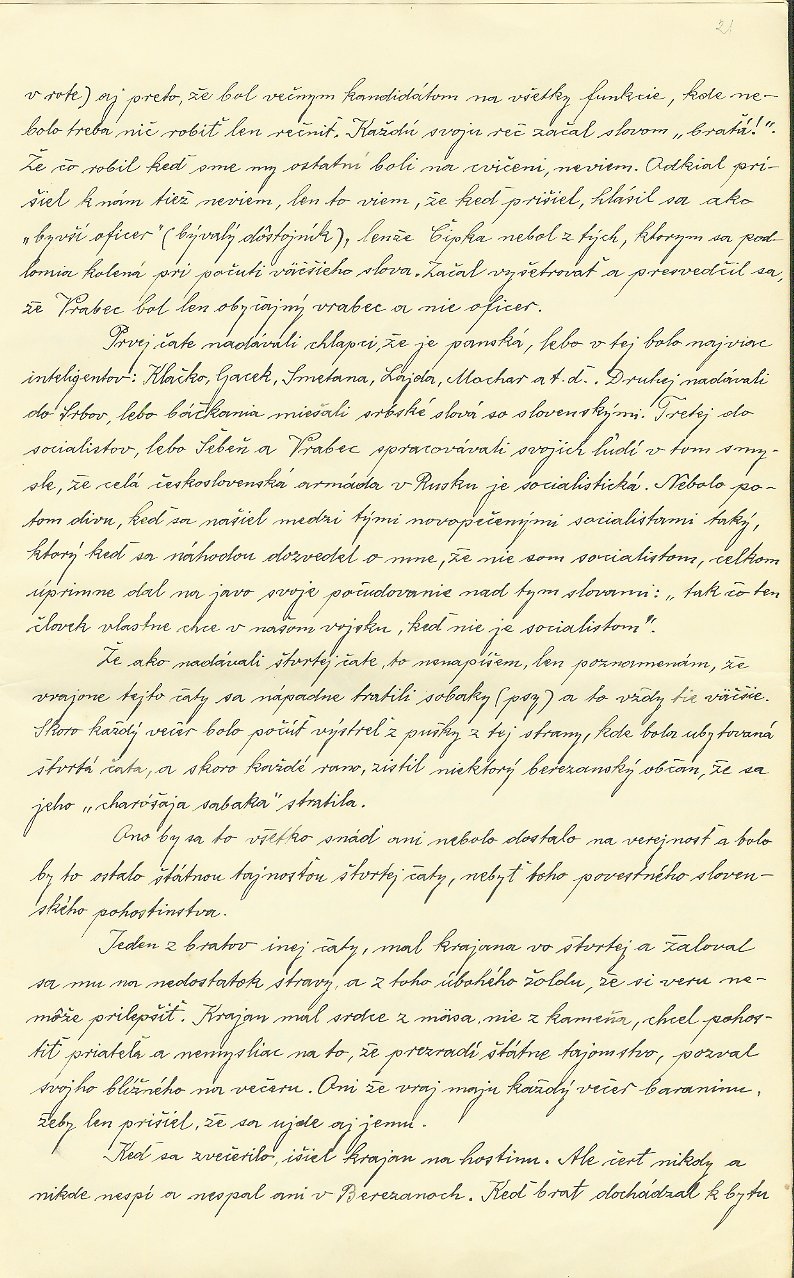 21
v rote) aj preto, že bol večnym kandidátom na všetky funkcie, kde ne-
bolo treba nič robiť len rečniť. Každú svoju reč začal slovom „bratá!".
Že čo robil keď sme my ostatní boli na cvičeni, neviem. Odkial pri-
šiel k nám tiež neviem, len to viem, že keď prišiel, hlásil sa ako
„byvší oficer" (bývalý dôstojník), lenže Čipka nebol z tých, ktorym sa pod-
lomia kolená pri počuti väčšieho slova. Začal vyšetrovať a presvedčil sa,
že Vrabec bol len obyčajný vrabec a nie oficer.
Prvej čate nadávali chlapci, že je panská, lebo v tej bolo najviac
inteligentov: Klačko, Gacek, Smetana, Lajda, Mochar a t. ď.. Druhej nadávali
do Srbov, lebo báčkania miešali srbské slová so slovenskými. Tretej do
socialistov, lebo Šebeň a Vrabec spracovávali svojich ľudí v tom smy-
sle, že celá československá armáda v Rusku je socialistická. Nebolo po-
tom divu, keď sa našiel medzi tými novopečenými socialistami taký,
ktorý keď sa náhodou dozvedel o mne, že nie som socialistom, celkom
úprimne dal na javo svoje počudovanie nad tym slovami: „tak čo ten
človek vlastne chce v našom vojsku, keď nie je socialistom".
Že ako nadávali štvrtej čate, to nenapíšem, len poznamenám, že
vrajone tejto čaty sa nápadne tratili sobaky (psy) a to vždy tie väčšie.
Skoro každý večer bolo počuť výstrel z pušky z tej strany, kde bola ubytovaná
štvrtá čata, a skoro každé rano, zistil niektorý berezanský občan, že sa
jeho „charóšaja sabaka" stratila.
Ono by sa to všetko snáď ani nebolo dostalo na verejnosť a bolo
by to ostalo štátnou tajnosťou štvrtej čaty, nebyť toho povestného sloven-
ského pohostinstva.
Jeden z bratov inej čaty, mal krajana vo štvrtej a žaloval
sa mu na nedostatok stravy, a z toho úbohého žoldu, že si veru ne-
môže prilepšiť. Krajan mal srdce z mäsa, nie z kameňa, chcel pohos-
tiť priateľa a nemysliac na to, že prezradí štátne tajomstvo, pozval
svojho blížného na večeru. Oni že vraj maju každý večer baraninu,
žeby len prišiel, že sa ujde aj jemu.
Keď sa zvečerilo, išiel krajan na hostinu. Ale čert nikdy a
nikde nespí a nespal ani v Berezanoch. Keď brat dochádzal k bytu